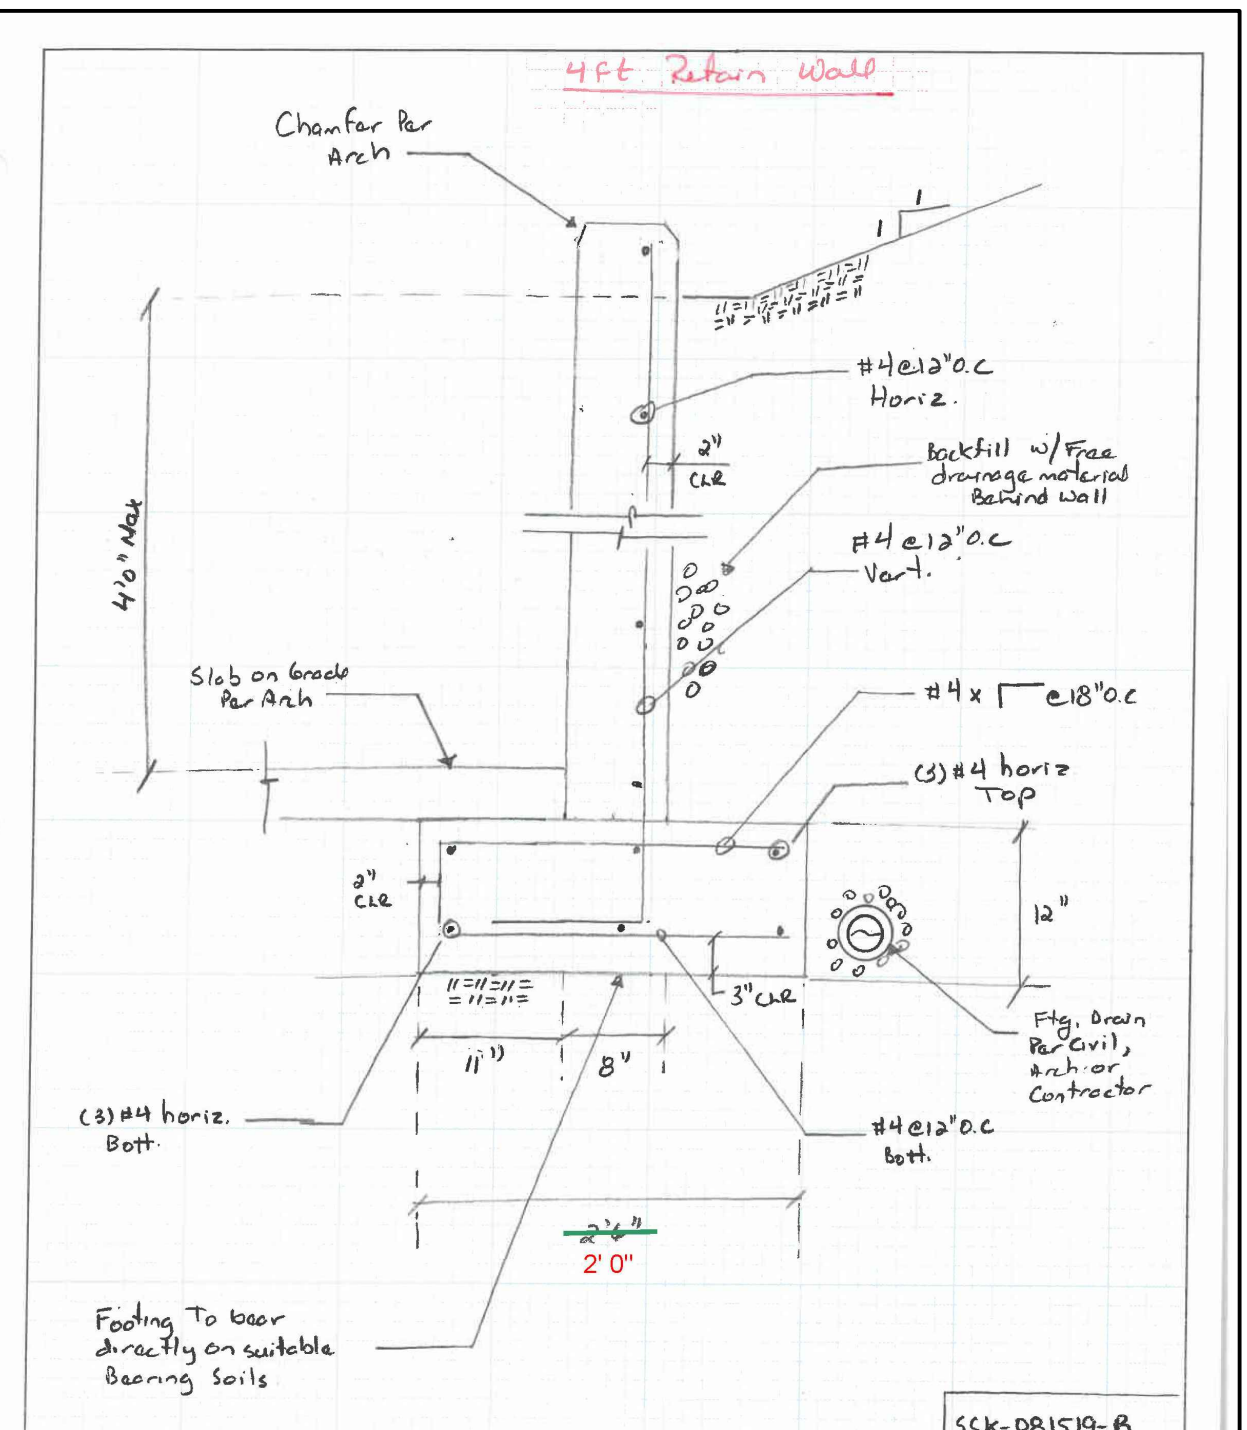 4ft Retain Wall
Chamfer Per
Arch
1
1
#4@12"O.C
Horiz.
2"
CLR
Backfill w/Free
drainage material
Behind Wall
#4@12"O.C
Vert.
4'0" Max
Slab on Grade
Per Arch
#4 x @18"O.C
(3)#4 horiz
Top
2"
CLR
12"
3" CLR
11"
8"
Ftg. Drain
Per Civil,
Arch. or
Contractor
(3)#4 horiz.
Bott.
#4@12"O.C
Bott.
2' 0"
Footing To bear
directly on suitable
Bearing Soils
SCK-081519-B